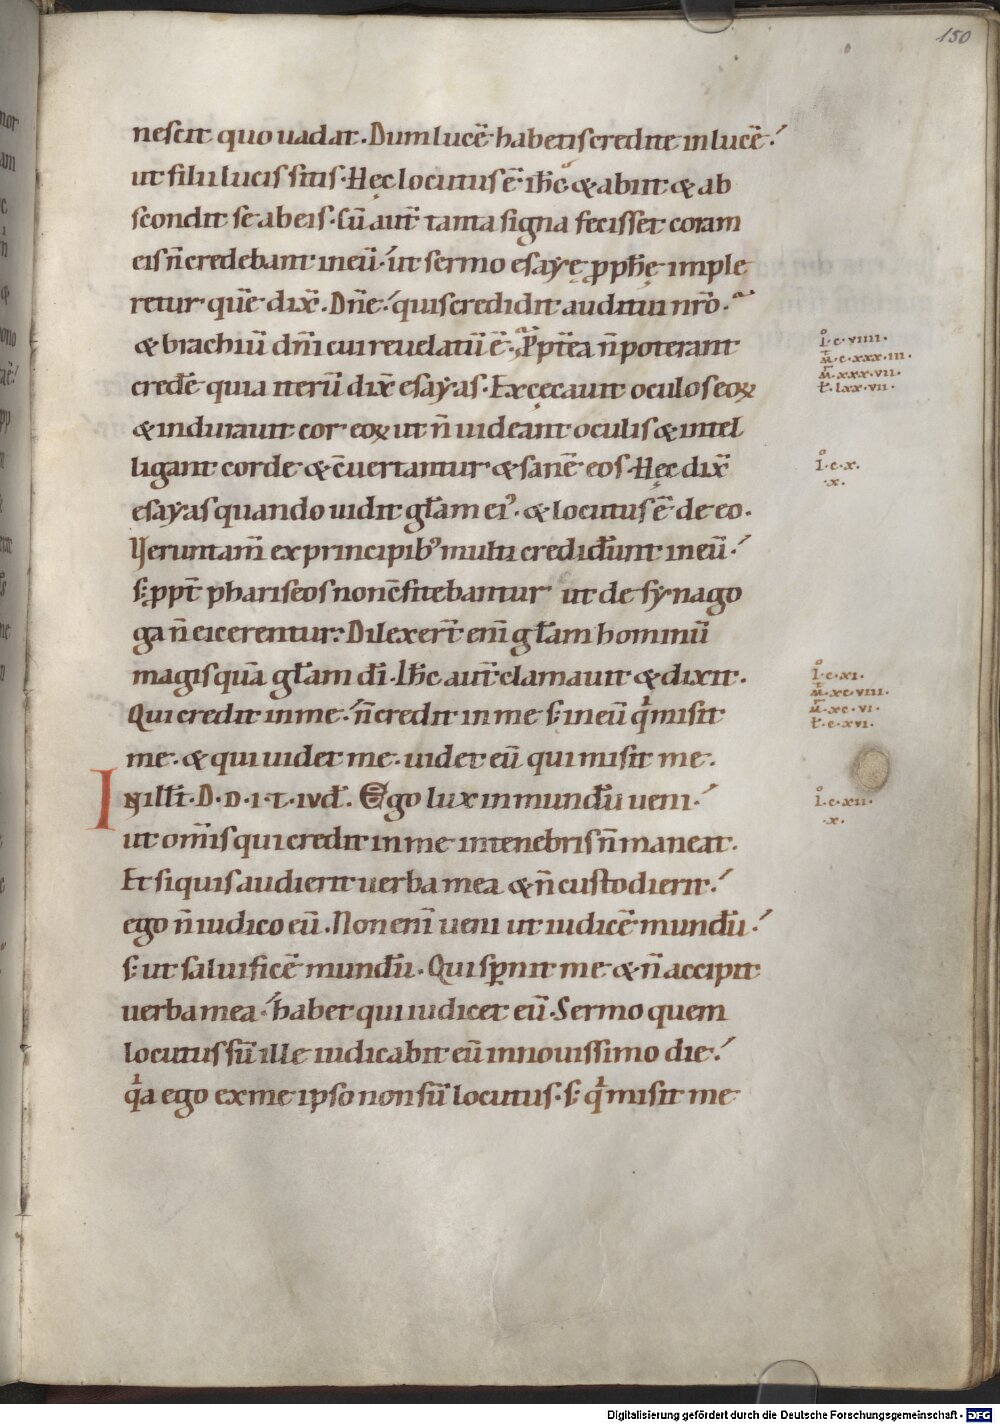 150
nescit quo uadat. Dum lucē habetis credite in lucē.
ut filii lucis sitis. Hęc locutus ē ih̄c & abiit & ab
scondit se ab eis. Cū aut̄ tanta signa fecisset coram
eis n̄ credebant in eū. ut sermo esayę ꝓph̄ę imple
retur quē dix̄. Dn̄e. quis credidit auditui nr̄o.
& brachiū dn̄i cui reuelatū ē. Ꝓpt̄ea n̄ poterant
cred̄e quia iterū dix̄ esayas. Excęcauit oculos eoꝝ
& indurauit cor eoꝝ ut n̄ uideant oculis & intel
ligant corde & c̄uertantur & sanē eos. Hęc dix̄
esayas quando uidit gl̄am ei᾽. & locutus ē de eo.
Veruntam̄ ex principib᾽ multi credider̄unt in eū.
s; ꝓpt̄ phariseos non c̄fitebantur ut de synago
ga n̄ eicerentur. Dilexer̄t eni̅ gl̄am hominū
magis quā gl̄am dī. Ih̄c aut̄ clamauit & dixit.
Qui credit in me. n̄ credit in me s; in eū qⁱ misit
me. & qui uidet me. uidet eū qui misit me.
IN ill̄ t̄. D. D. I. T. IVD̄. Ego lux in mundū ueni.
ut om̄is qui credit in me in tenebris n̄ maneat.
Et si quis audierit uerba mea & n̄ custodierit.
ego n̄ iudico eū. Non eni̅ ueni ut iudicē mundū.
s; ut saluificē mundū. Qui sꝑnit me & n̄ accipit
uerba mea. habet qui iudicet eū. Sermo quem
locutus sū ille iudicabit eū in nouissimo die.
qⁱa ego ex me ipso non sū locutus. s; qⁱ misit me
I. c. viiii.
M̄. c. xxx. iii.
M̄. xxx. vii.
L̄. lxx. vii.
I. c. x.
.x.
I. c. xi.
M̄. xc. viii.
M̄. xc. vi.
L̄. c. xvi.
I. c. xii.
.x.
Digitalisierung gefördert durch die Deutsche Forschungsgemeinschaft - DFG